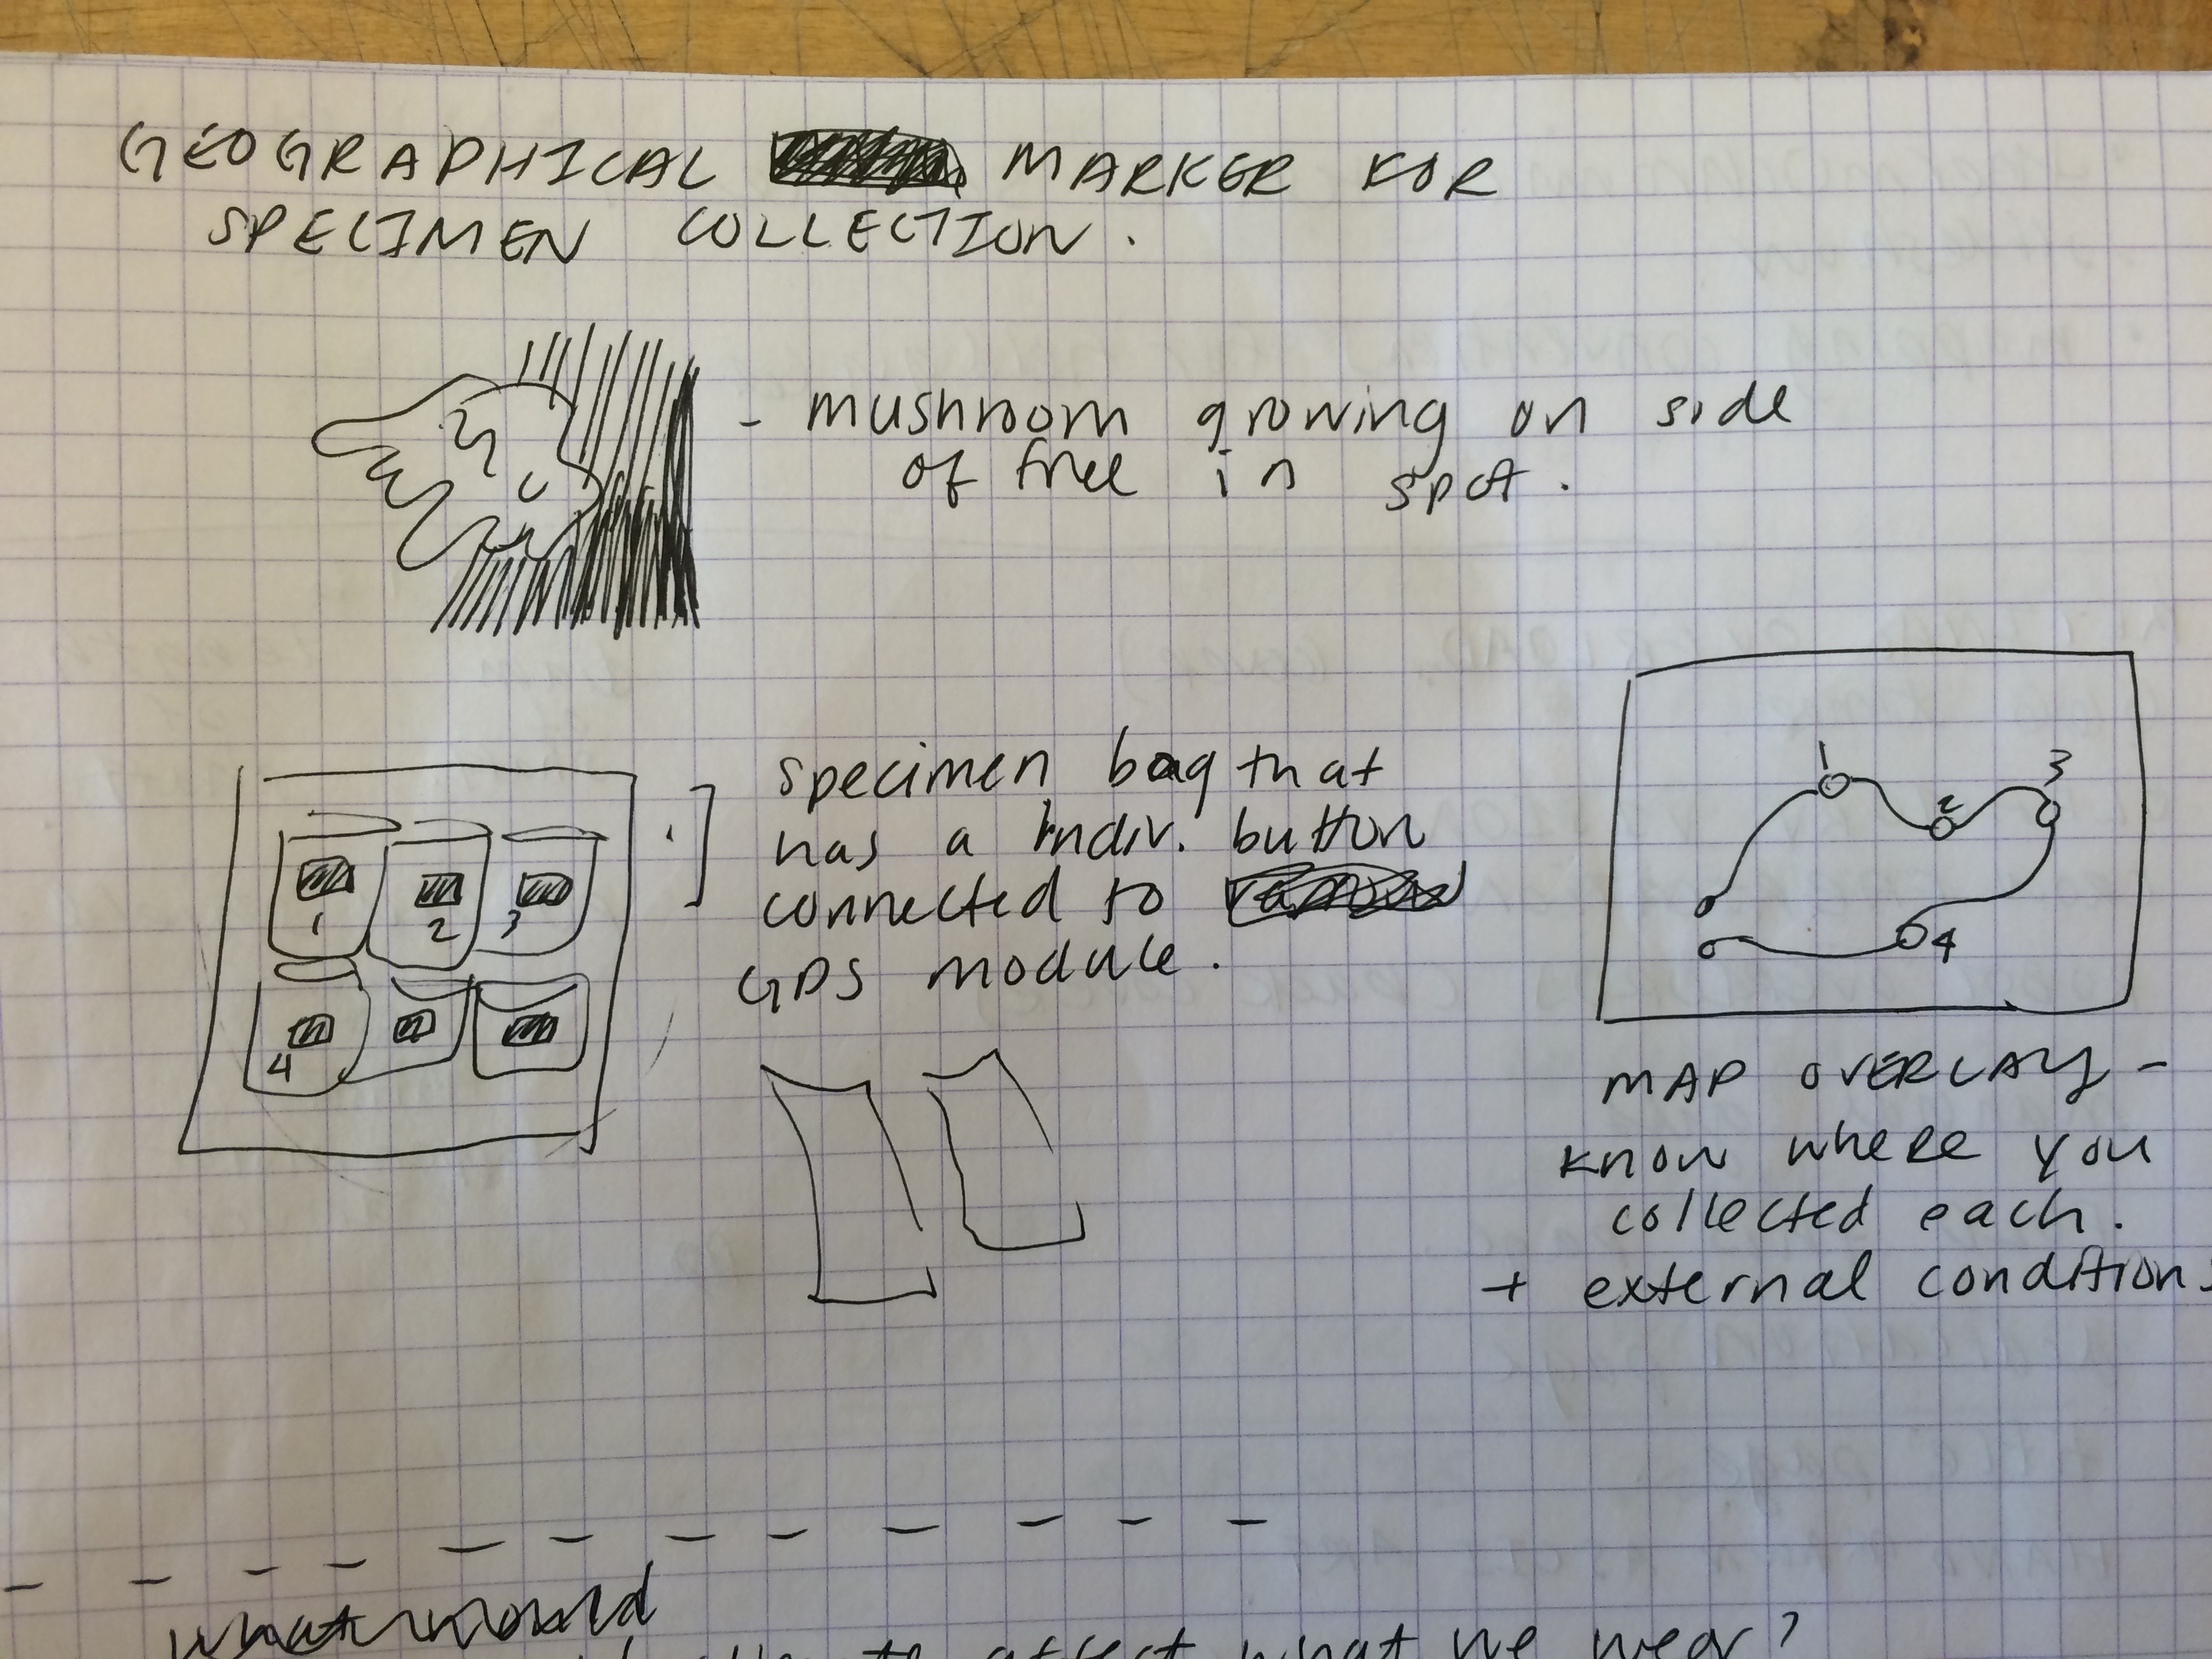 GEOGRAPHICAL MARKER FOR
SPECIMEN COLLECTION.
- mushroom growing on side
of tree in spot.
specimen bag that
has a indiv. button
connected to
GPS module.
1
2
3
4
1
2
3
4
MAP OVERLAY -
KNOW WHERE YOU
collected each.
+ external conditions
what would
affect what we wear?